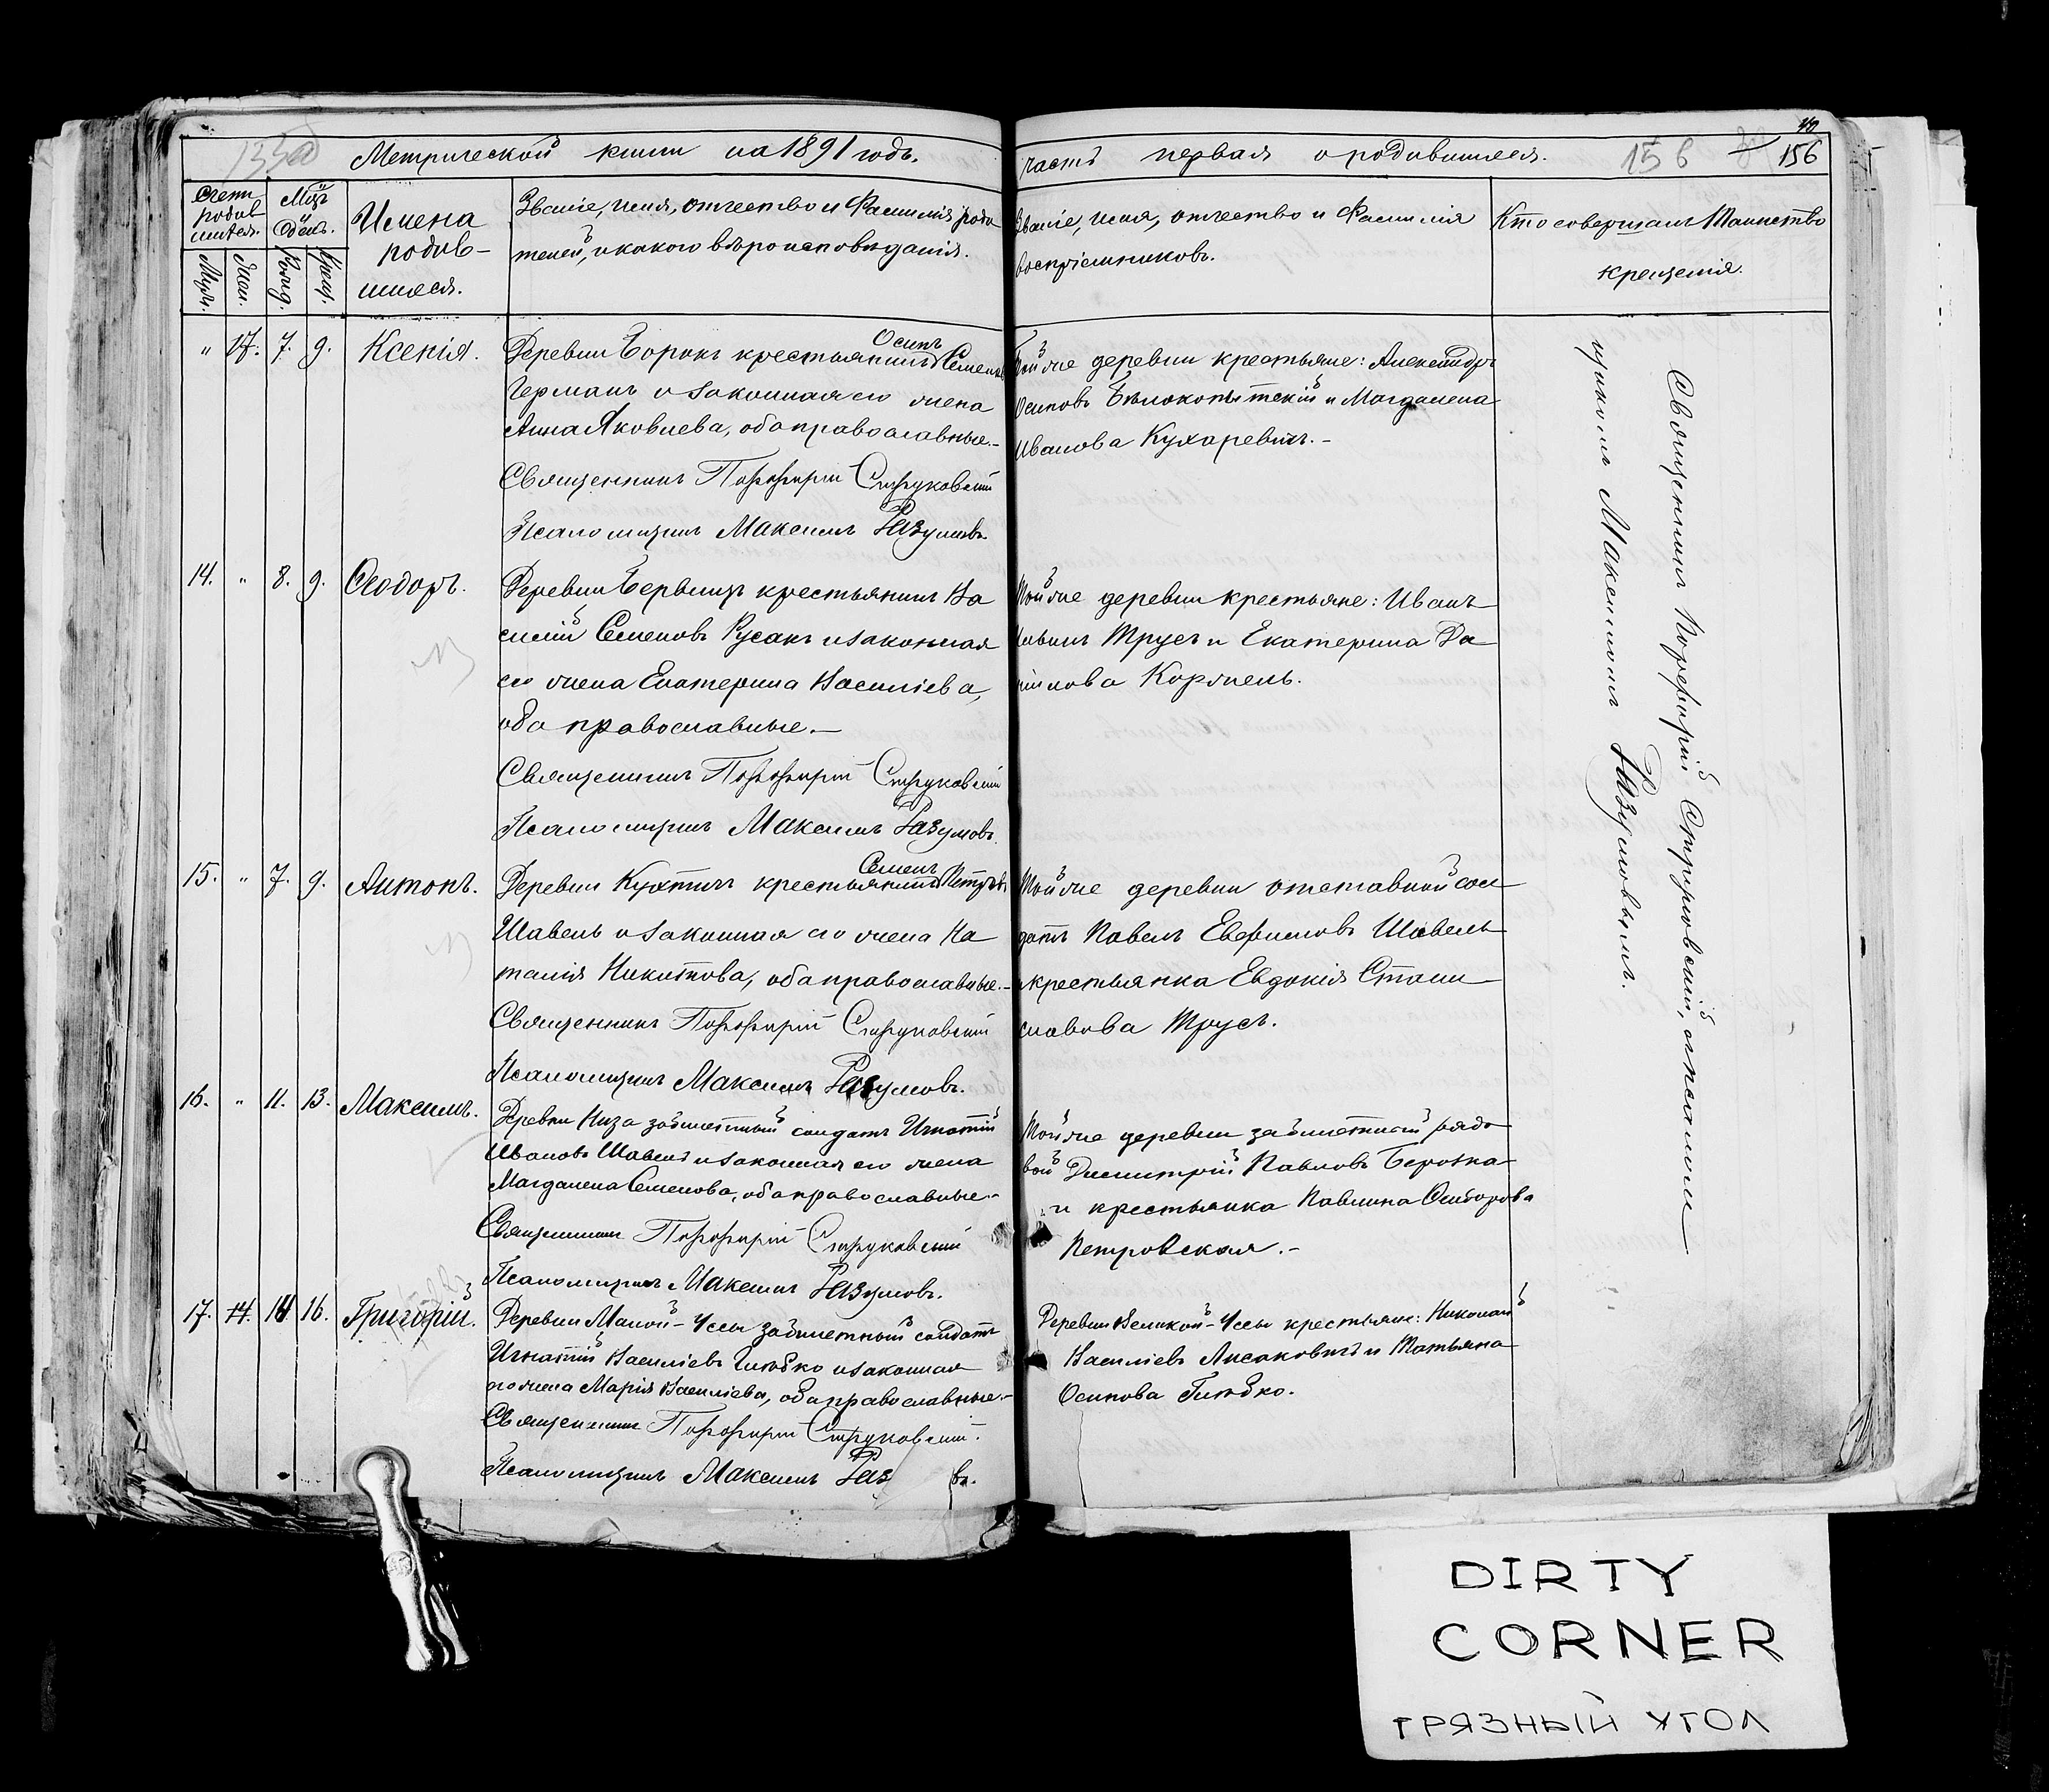 Метрической книги на 1891 годъ.
часть первая о родившихся.
156
156
Счетъ родив шихся.
Мѣц. и день.
Муж.
Жен.
Рожд.
Крещ.
Имена
родив-
шихся.
Званіе, имя, отчество и Фамилія роди
телей, и какого вѣроисповѣданія.
Званіе, имя, отчество и Фамилія
воспріемниковъ.
Кто совершалъ Таинство
крещенія.
" 17. 7. 9. Ксенія.
Осипъ
Деревни Борокъ крестьянинъ Семеновъ
Германъ и законная его жена
Анна Яковлева, оба православные.-
Священникъ Порфирій Струковскій
Псаломщикъ Максимъ Разумовъ.
Той же деревни крестьяне: Александръ
Осиповъ Бѣлокопытскій и Магдалена
Иванова Кухаревичъ.-
14. " 8. 9. Ѳеодоръ.
Деревни крестьянинъ Ва
силій Семеновъ Русакъ и законная
его жена Екатерина Василіева,
оба православные.-
Священникъ Порфирій Струковскій
Псаломщикъ Максимъ Разумовъ.
Той же деревни крестьяне: Иванъ
Трусъ и Екатерина Да
ніилова
15. " 7. 9. Антонъ.
Семенъ
Деревни Кухтичъ крестьянинъ Петровъ
Шавель и законная его жена На
талія Никитова, оба православные.-
Священникъ Порфирій Струковскій
Псаломщикъ Максимъ Разумовъ.
Той же деревни отставной сол
датъ Павелъ Евфимовъ Шавель
и крестьянка Евдокія Стани
славова Трусъ.
16. " 11. 13. Максимъ.
Деревни Низа забилетный солдатъ Игнатій
Ивановъ Шавель и законная его жена
Магдалена Семенова, оба православные.-
Священникъ Порфирій Струковскій
Псаломщикъ Максимъ Разумовъ.
Той же деревни забилетный рядо
вой Димитрій Павловъ Берозка
и крестьянка Павлина
Петровская.-
17. 14. 14 16. Григорій.
Деревни Малой-Уссы забилетный солдатъ
Игнатій Василіевъ Гинтко и законная
его жена Марія Василіева, оба православные.-
Священникъ Порфирій Струковскій.
Псаломщикъ Максимъ Раз въ.
Деревни Великой-Уссы крестьяне: Николай
Василіевъ Лисаковичъ и Татьяна
Осипова
Священникъ Порфирій Струковскій, съ псалом
щикомъ Максимомъ Разумовымъ.
DIRTY
CORNER
ГРЯЗНЫЙ УГОЛ